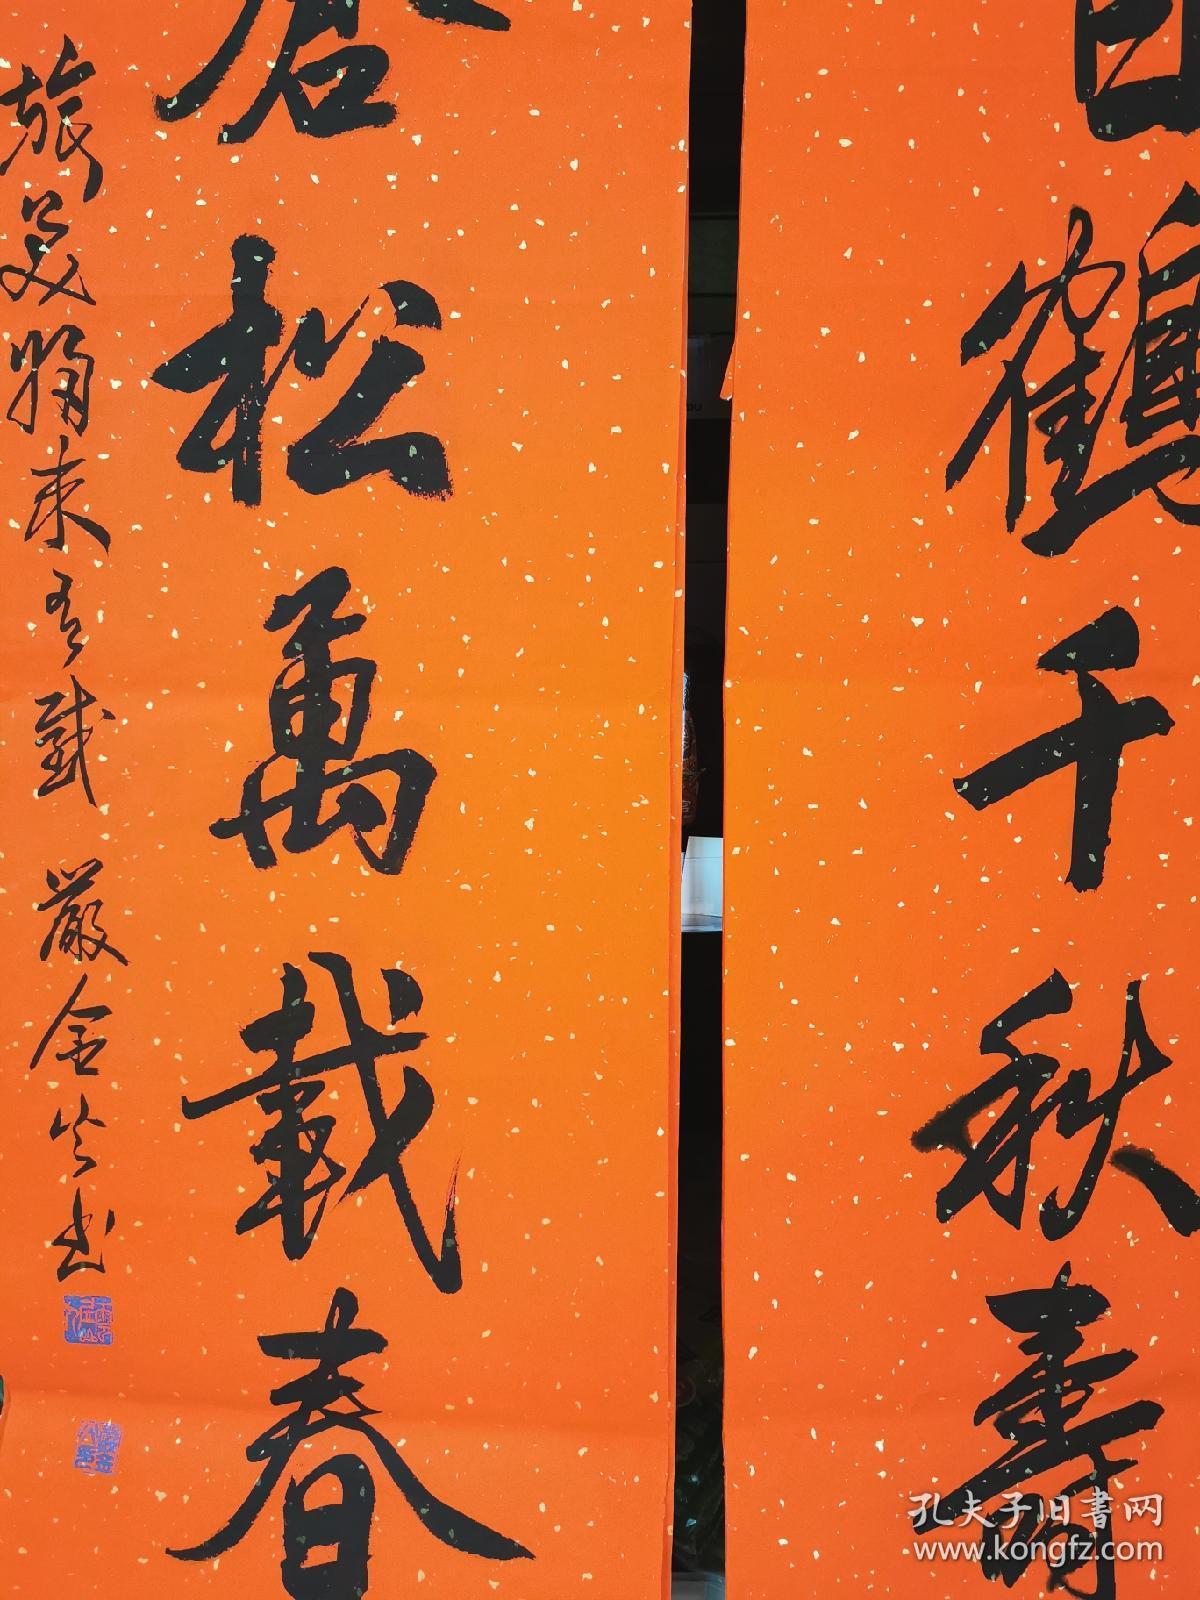 白鶴千秋壽
蒼松萬載春
旅美歸來有感 嚴金公書
孔夫子旧書网
www.kongfz.com